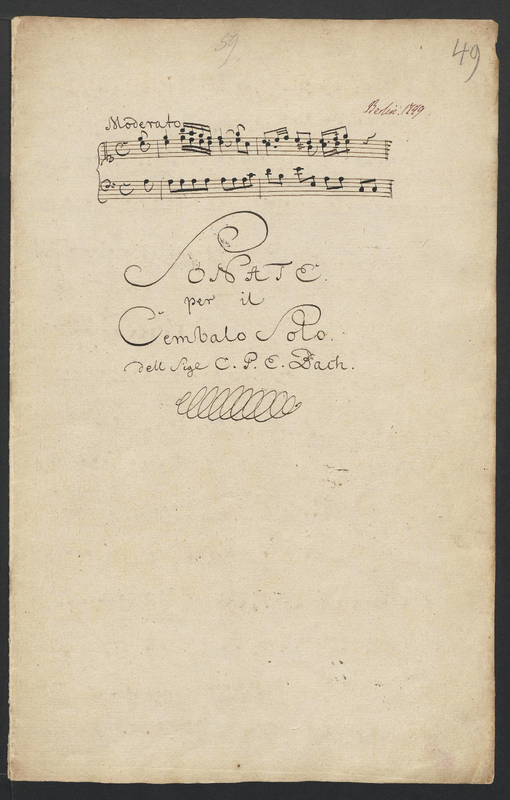 59
49
Berlin. 1749
Moderato
SONATE.
per il
Cembalo Solo.
dell Sigr C. P. E. Bach.